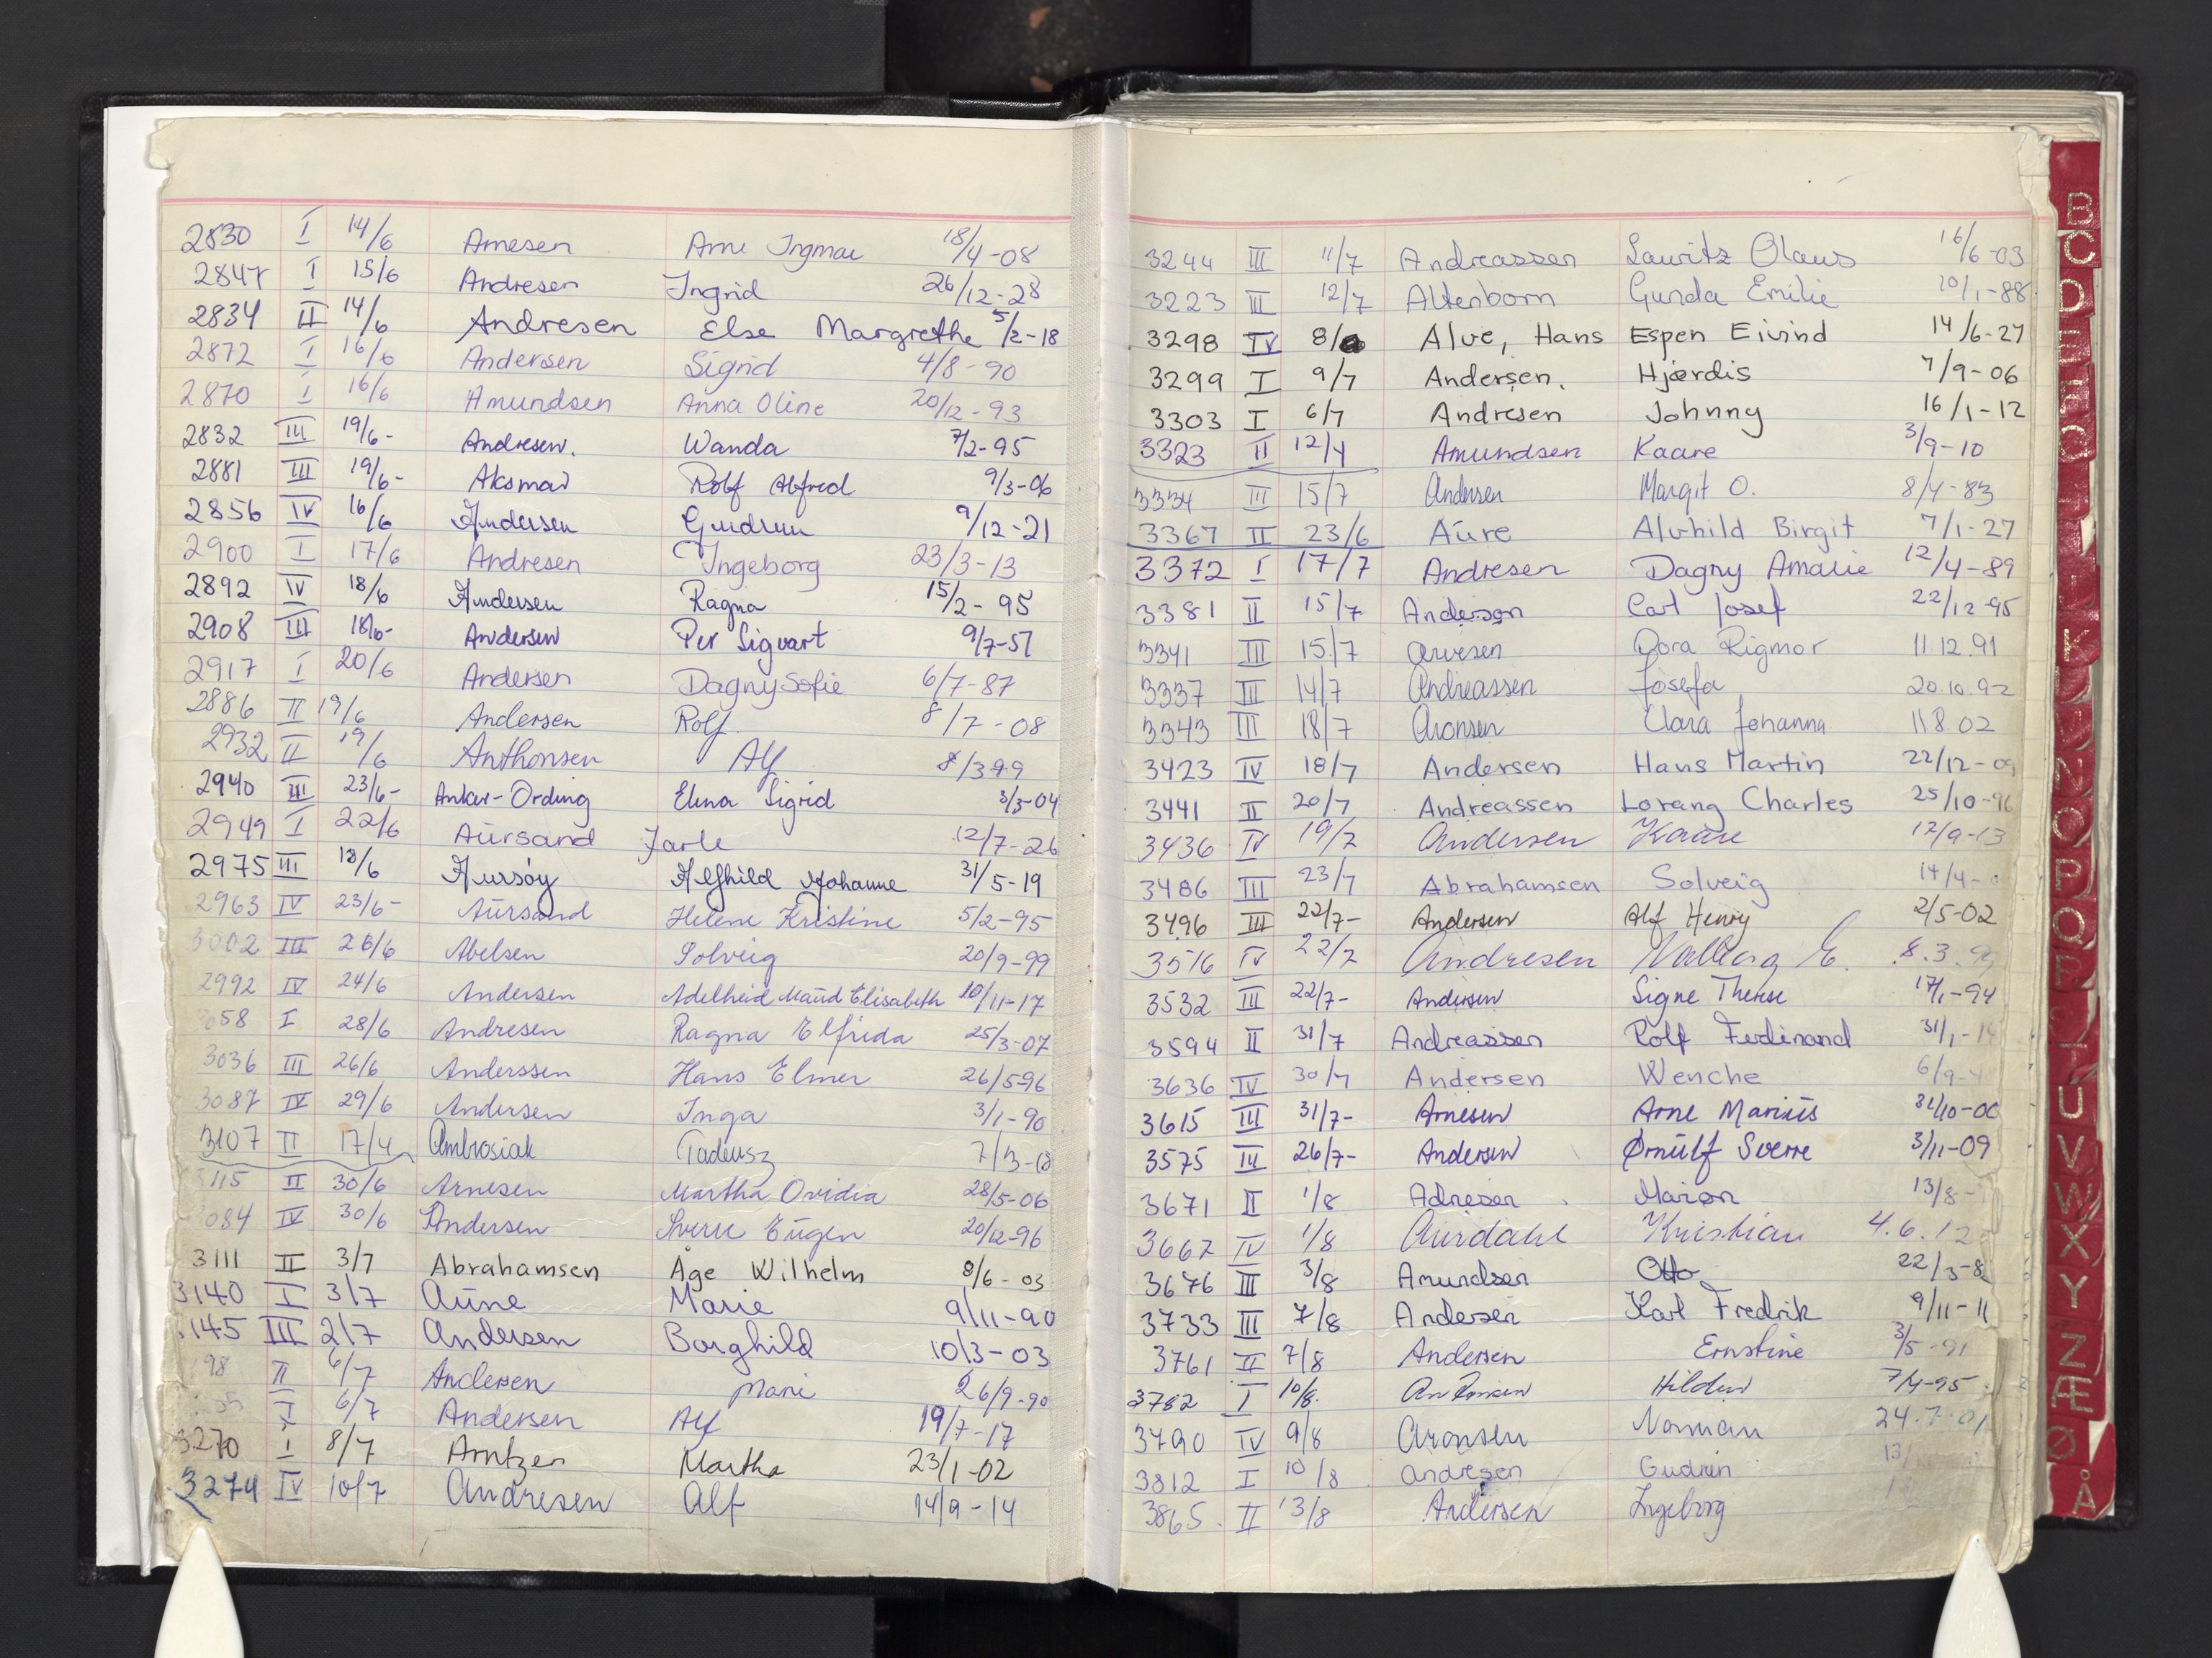 2830 I 14/6 Arnesen Arne Ingmar 18/4-08
2847 I 15/6 Andresen Ingrid 26/12-28
2834 II 14/6 Andresen Else Margrethe 5/2-18
2872 I 16/6 Andersen Sigrid 4/8-90
2870 I 16/6 Amundsen Anna Oline 20/12-93
2832 III 19/6- Andresen. Wanda 7/2-95
2881 III 19/6- Aksmar Rolf Alfred 9/3-06
2856 IV 16/6 Andersen Gudrun 9/12-21
2900 I 17/6 Andresen Ingeborg 23/3-13
2892 IV 18/6 Andersen Ragna 15/2-95
2908 III 18/6- Andersen Per Sigvart 9/7-51
2917 I 20/6 Andersen Dagny Sofie 6/7-87
2886 II 19/6 Andersen Rolf 8/7-08
2932 II 19/6 Anthonsen Alf 8/3 99
2940 III 23/6- Anker-Ording Elina Sigrid 3/3-04
2949 I 22/6 Aursand Jarle 12/7-26
2975 III 18/6 Aursøy Alfhild Johanne 31/5-19
2963 IV 23/6- Aursand Helene Kristine 5/2-95
3002 III 26/6 Abelsen Solveig 20/9-99
2992 IV 24/6 Andersen Adelheid Maud Elisabeth 10/11-17
58 I 28/6 Andresen Ragna Elfrida 25/3-07
3036 III 26/6 Anderssen Hans Elmer 26/5-96
3087 IV 29/6 Andersen Inga 3/1-90
3107 II 17/4 Ambrosiak Tadeusz 7/3-
115 II 30/6 Arnesen Martha Ovidia 28/5-06
3084 IV 30/6 Andersen Sverre Eugen 20/12-96
3111 II 3/7 Abrahamsen Åge Wilhelm 8/6-03
3140 I 3/7 Aune Marie 9/11-90
145 III 2/7 Andersen Borghild 10/3-03
98 II 6/7 Andersen Marie 26/9-90
I 6/7 Andersen Alf 19/7-17
3270 I 8/7 Arntzen Martha 23/1-02
3274 IV 10/7 Andresen Alf 14/9-14
3244 III 11/7 Andreassen Lauritz Olaus 16/6-03
3223 III 12/7 Altenborn Gunda Emilie 10/1-88
3298 IV 8/ Alve, Hans Espen Eivind 14/6-27
3299 I 9/7 Andersen. Hjørdis 7/9-06
3303 I 6/7 Andresen Johnny 16/1-12
3323 II 12/7 Amundsen Kaare 3/9-10
3334 III 15/7 Andersen Margit O. 8/4-83
3367 II 23/6 Aure Alvhild Birgit 7/1-27
3372 I 17/7 Andresen Dagny Amalie 12/4-89
3381 II 15/7 Anderson Carl Josef 22/12-95
3341 III 15/7 Arvesen Dora Rigmor 11.12.91
3337 III 14/7 Andreassen Josefa 20.10.92
3343 III 18/7 Aronsen Clara Johanna 11.8.02
3423 IV 18/7 Andersen Hans Martin 22/12-09
3441 II 20/7 Andreassen Lorang Charles 25/10-96
3436 IV 19/7 Andersen Kaare 17/9-13
3486 III 23/7 Abrahamsen Solveig 14/4-
3496 III 22/7- Andersen Alf Henry 2/5-02
3516 IV 22/7 Andresen Valborg E. 8.3.
3532 III 22/7- Andersen Signe Therese 17/1-94
3594 II 31/7 Andreassen Rolf Ferdinand 31/1-
3636 IV 30/7 Andersen Wenche 6/9-
3615 III 31/7- Arnesen Arne Marius 31/10-00
3575 III 26/7- Andersen Ørnulf Sverre 3/11-09
3671 II 1/8 Adnesen Marion 13/8-
3667 IV 1/8 Aurdahl Kristian 4.6.12
3676 III 3/8 Amundsen Otto 22/3-8
3733 III 7/8 Andersen Karl Fredrik 9/11-11
3761 II 7/8 Andersen Ernstine 3/5-91
3782 I 10/8. Hildur 7/4-95
3790 IV 9/8 Aronsen Norman 24.7.01
3812 I 10/8 Andresen Gudrun 13/
3865 II 13/8 Andersen Ingeborg
B
C
D
E
F
G
K
N
O
P
Q
R
U
V
W
X
Y
Z
Æ
Ø
Å